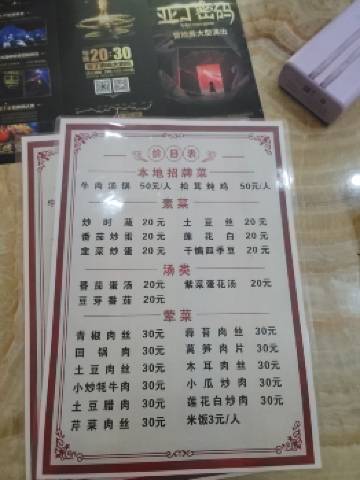 20:30
亚丁密码
价目表
本地招牌菜
牛肉汤锅 50元/人 松茸炖鸡 50元/人
素菜
炒时蔬 20元 土豆丝 20元
番茄炒蛋 20元 莲花白 20元
韭菜炒蛋 20元 干煸四季豆 20元
汤类
番茄蛋汤 20元 紫菜蛋花汤 20元
豆芽番茄 20元
荤菜
青椒肉丝 30元 蒜苔肉丝 30元
回锅肉 30元 莴笋肉片 30元
土豆肉丝 30元 木耳肉丝 30元
小炒牦牛肉 30元 小瓜炒肉 30元
土豆腊肉 30元 莲花白炒肉 30元
芹菜肉丝 30元 米饭3元/人